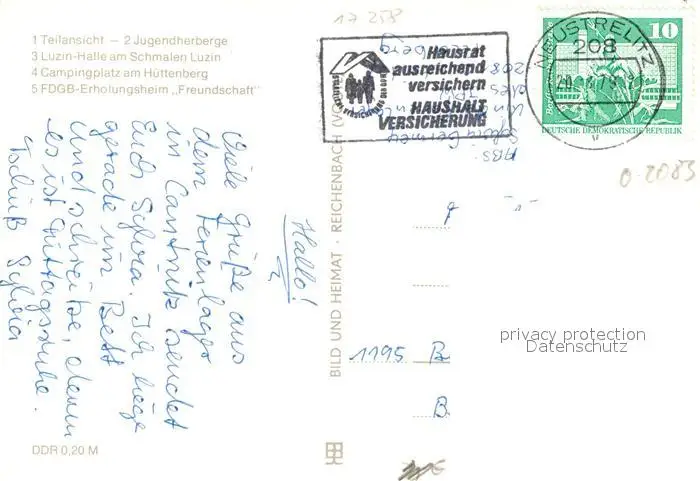 17 258
1 Teilansicht – 2 Jugendherberge
3 Luzin-Halle am Schmalen Luzin
4 Campingplatz am Hüttenberg
5 FDGB-Erholungsheim „Freundschaft"
Hallo!
Viele Grüße aus
dem Ferienlager
in Cantnitz sendet
Euch Sylvia. Ich liege
gerade im Bett
und schreibe, denn
es ist Mittagsruhe.
Tschüß Sylvia
DDR 0,20 M
BILD UND HEIMAT · REICHENBACH (VOGTL)
Hausrat
ausreichend
versichern
HAUSHALT
VERSICHERUNG
NEUSTRELITZ
208
10
DEUTSCHE DEMOKRATISCHE REPUBLIK
Abs.
208
0-2083
1195 B
B
privacy protection
Datenschutz